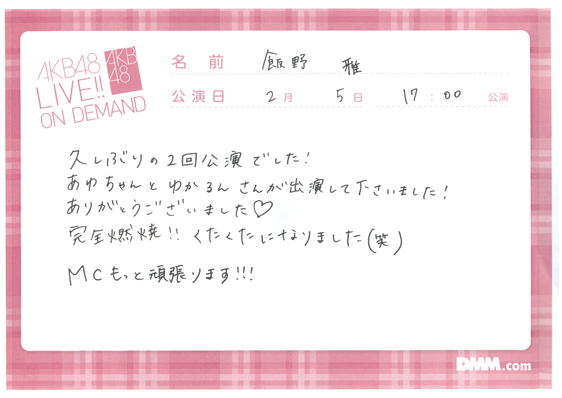 AKB48
LIVE!!
ON DEMAND
AKB
48
名前 飯野 雅
公演日 2月 5日 17:00 公演
久しぶりの2回公演でした!
あゆちゃんとゆかるんさんが出演して下さいました!
ありがとうございました♡
完全燃焼!! くたくたになりました(笑)
MCもっと頑張ります!!!
DMM.com